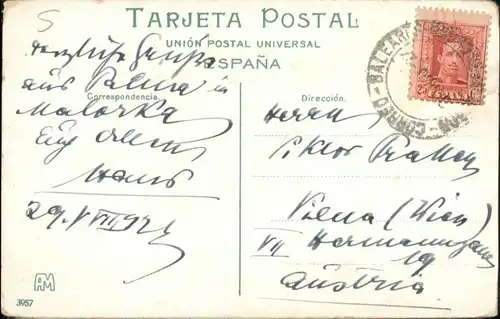 S
TARJETA POSTAL
UNIÓN POSTAL UNIVERSAL
ESPAÑA
Correspondencia
Dirección.
herzliche Grüße
aus Palma in
Malorka
Hans
29./VIII 192
Herrn
Viktor
Viena (Wien)
VII Hermanngasse
19
Austria
CORREO - BALEARES
25
AM
3957